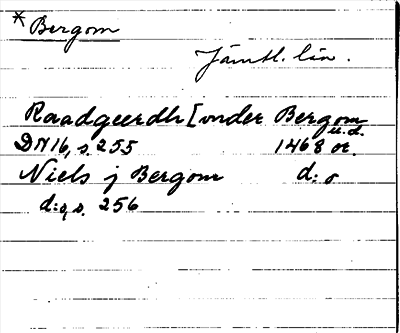 * Bergom
Jämtl. län.
Raadgeerdh [vnder Bergom
u.d.
DN 16, s. 255 1468 or.
Niels j Bergom d:o
d:o, s. 256